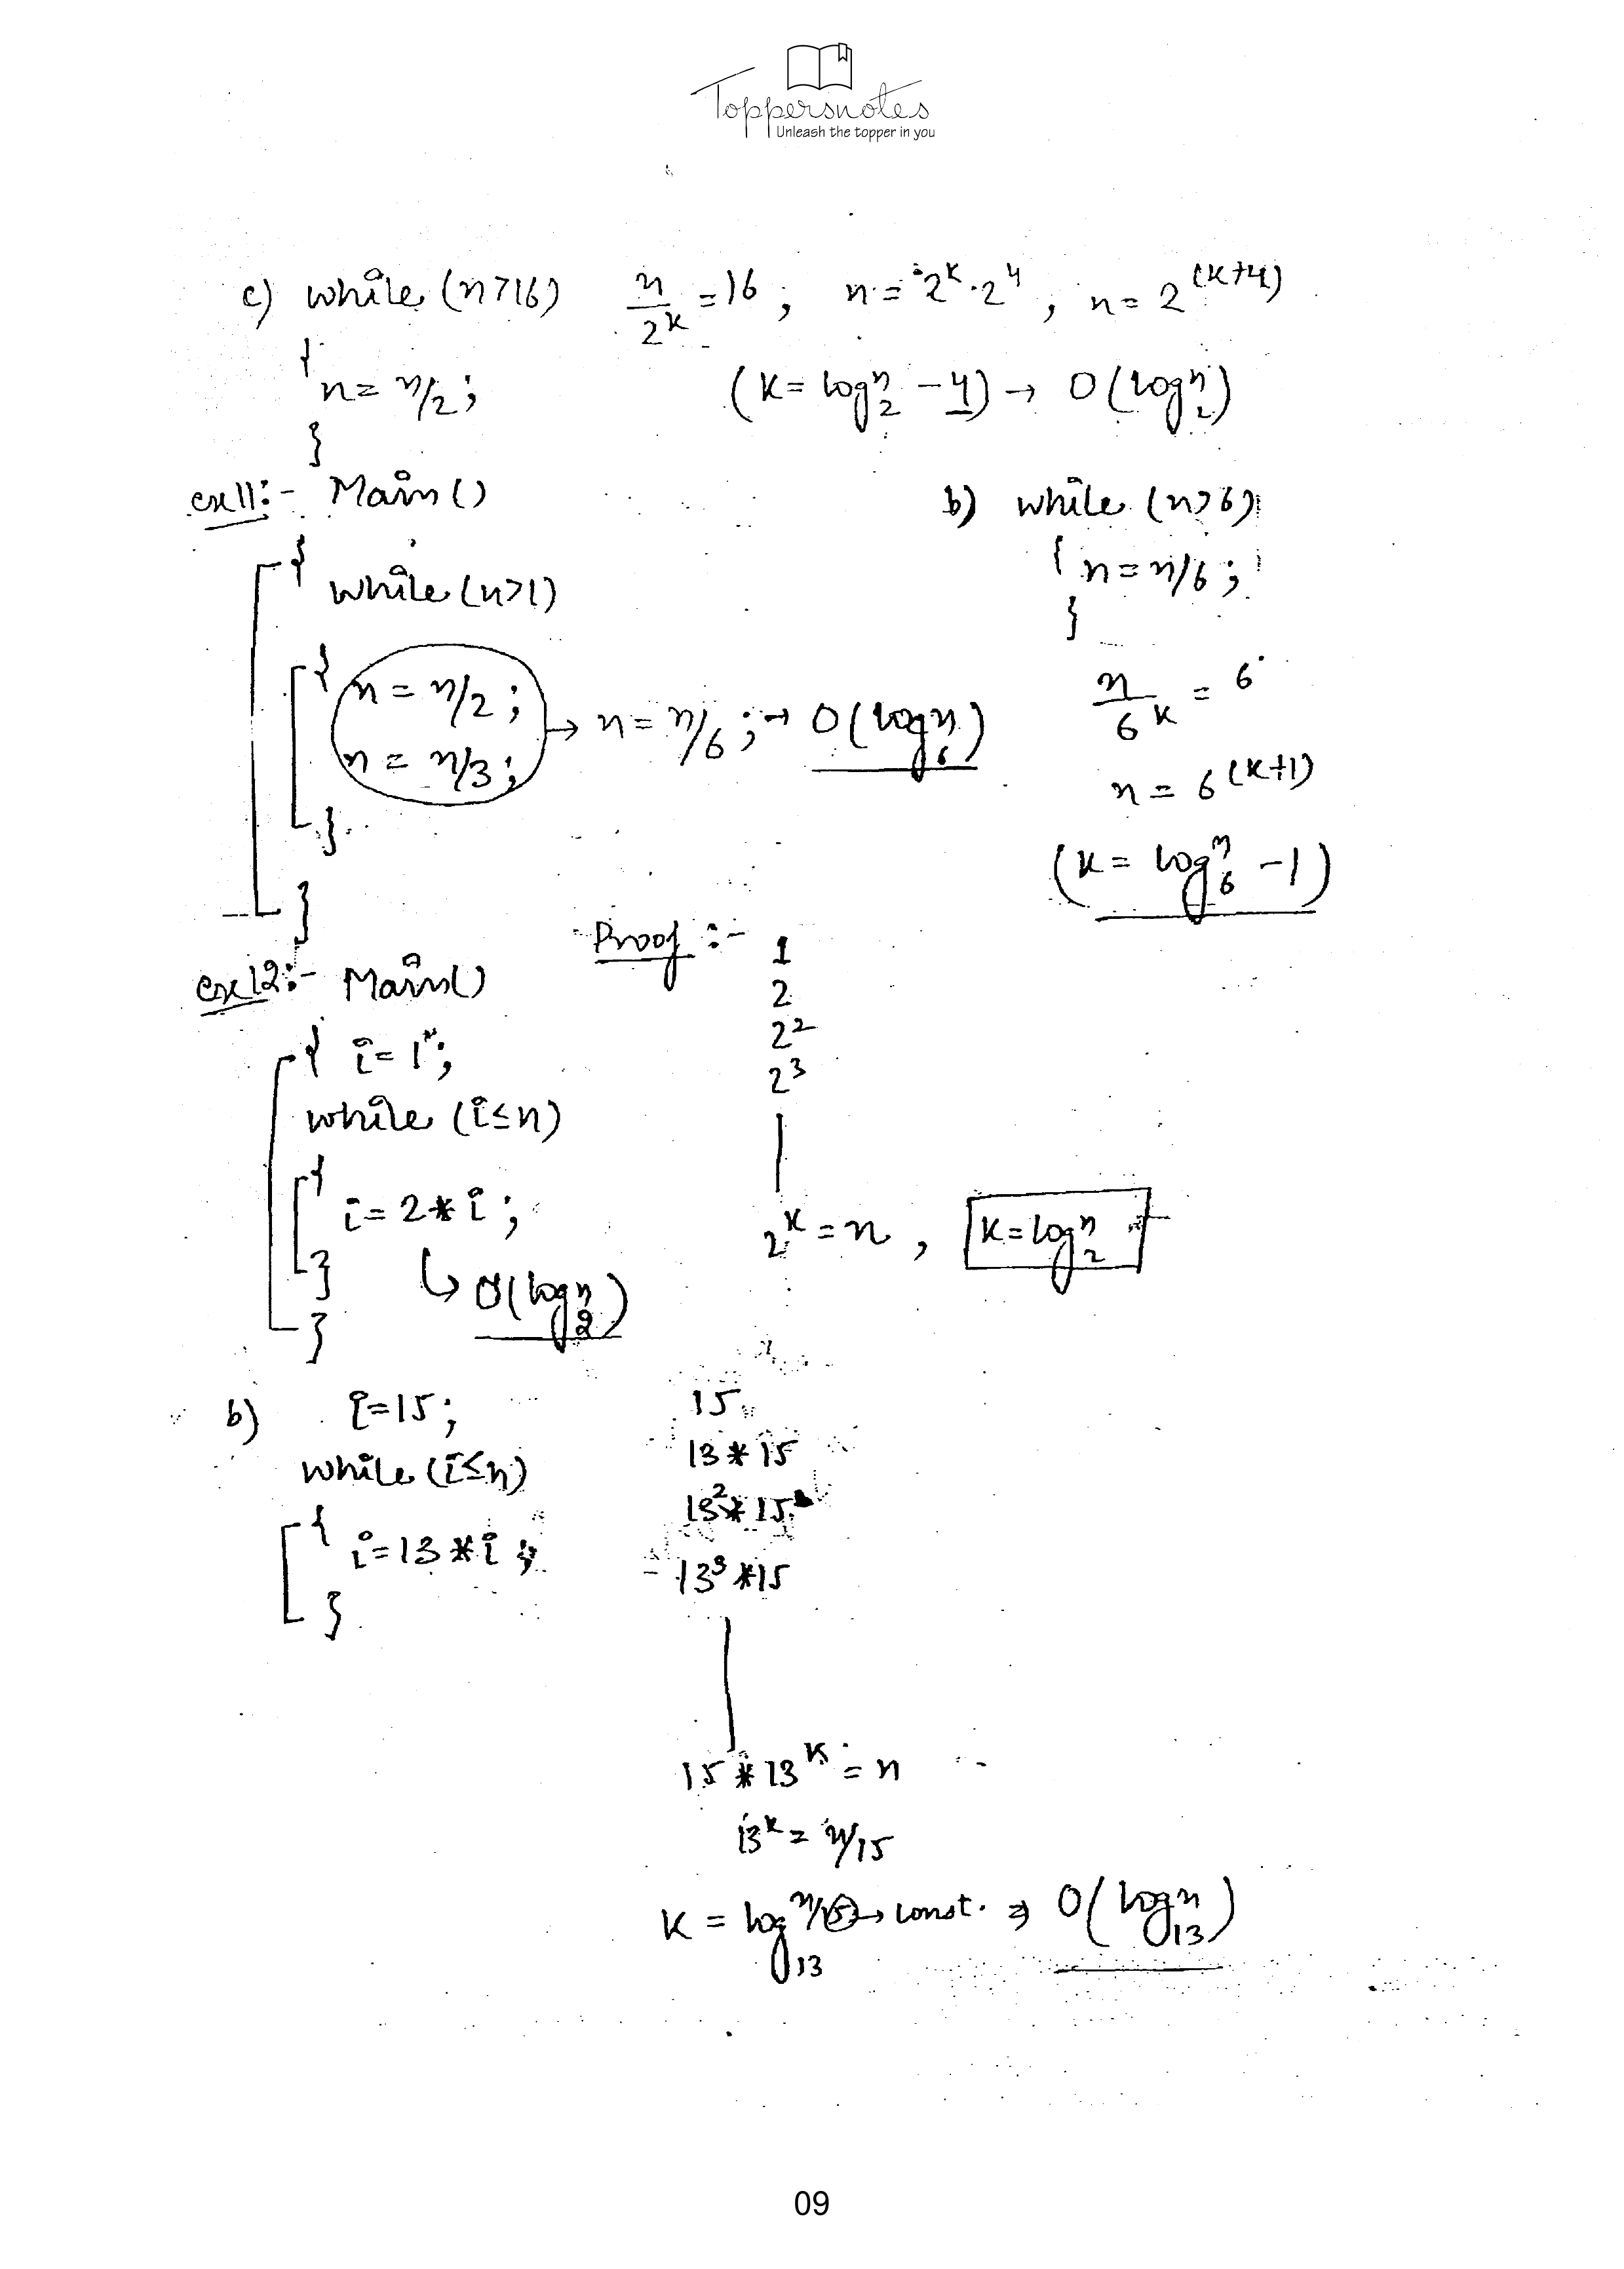 Toppersnotes
Unleash the topper in you
c) while (n>16) n/2^k = 16 ; n = 2^k · 2^4 , n = 2^(k+4)
{
n = n/2 ;
}
(k = log₂ n - 4) → O(log₂ n)
ex11:- Main()
{
while (n>1)
{
n = n/2 ;
n = n/3 ;
→ n = n/6 ; → O(log₆ n)
}
}
b) while (n>6)
{ n = n/6 ;
}
n/6^k = 6
n = 6^(k+1)
(k = log₆ n - 1)
ex12:- Main()
{ i = 1 ;
while (i ≤ n)
{
i = 2 * i ;
}
↳ O(log₂ n)
}
Proof :- 1
2
2²
2³
|
2^k = n , k = log₂ n
b) i = 15 ;
while (i ≤ n)
{
i = 13 * i ;
}
15
13 * 15
13² * 15
13³ * 15
|
15 * 13^k = n
13^k = n/15
k = log₁₃ n/15 → const. ⇒ O(log₁₃ n)
09